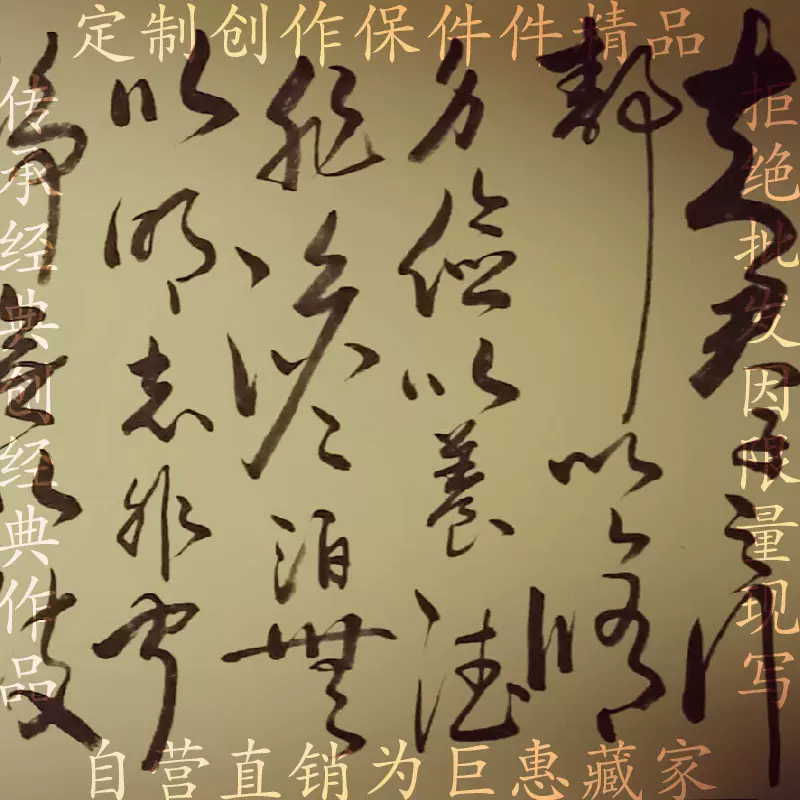 定制创作保件件精品
拒绝批发因限量现写
夫君子之行
靜以修
身儉以養德
非澹泊無
以明志非寧
靜無以致
传承经典创经典作品
自营直销为巨惠藏家